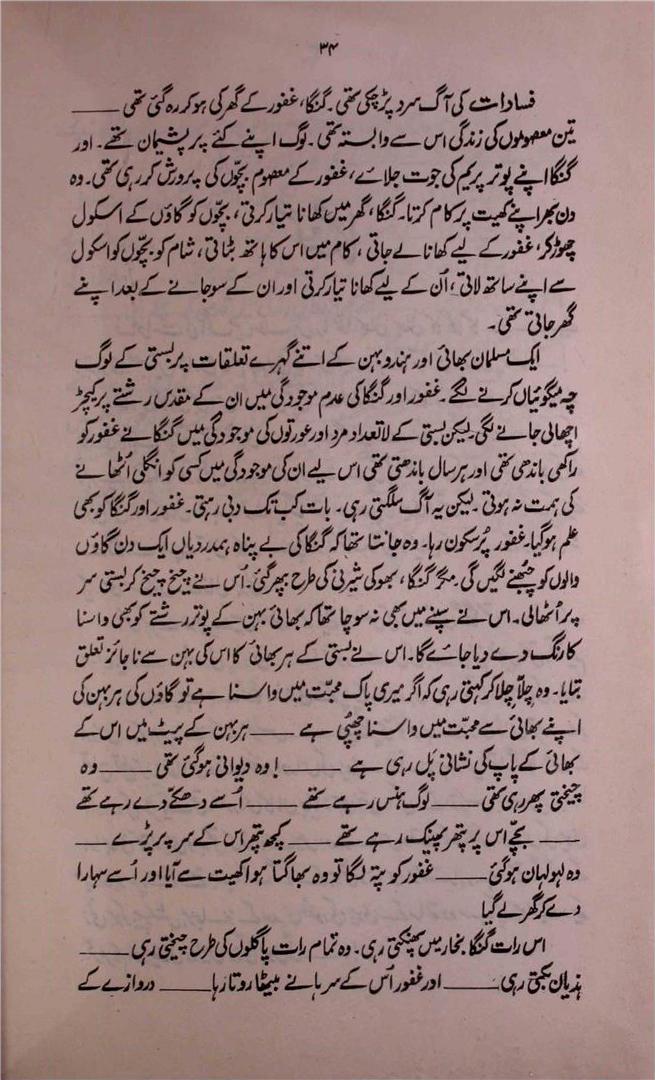 ۳۴
فسادات کی آگ سرد پڑ چکی تھی۔ گنگا، غفور کے گھر کی ہو کر رہ گئی تھی ———
تین معصوموں کی زندگی اس سے وابستہ تھی۔ لوگ اپنے کئے پر پشیمان تھے۔ اور
گنگا اپنے پوتر پریم کی جوت جلائے، غفور کے معصوم بچّوں کی پرورش کر رہی تھی۔ وہ
دن بھر اپنے کھیت پر کام کرتا۔ گنگا، گھر میں کھانا تیار کرتی، بچّوں کو گاؤں کے اسکول
چھوڑ کر، غفور کے لیے کھانا لے جاتی، کام میں اس کا ہاتھ بٹاتی، شام کو بچّوں کو اسکول
سے اپنے ساتھ لاتی، اُن کے لیے کھانا تیار کرتی اور ان کے سو جانے کے بعد اپنے
گھر جاتی تھی۔
ایک مسلمان بھائی اور ہندو بہن کے اتنے گہرے تعلقات پر بستی کے لوگ
چہ میگوئیاں کرنے لگے۔ غفور اور گنگا کی عدم موجودگی میں ان کے مقدس رشتے پر کیچڑ
اچھالی جانے لگی۔ لیکن بستی کے لاتعداد مرد اور عورتوں کی موجودگی میں گنگا نے غفور کو
راکھی باندھی تھی اور ہر سال باندھتی تھی اس لیے ان کی موجودگی میں کسی کو انگلی اُٹھانے
کی ہمت نہ ہوتی۔ لیکن یہ آگ سلگتی رہی۔ بات کب تک دبی رہتی۔ غفور اور گنگا کو بھی
علم ہو گیا۔ غفور پُرسکون رہا۔ وہ جانتا تھا کہ گنگا کی بے پناہ ہمدردیاں ایک دن گاؤں
والوں کو چُبھنے لگیں گی۔ مگر گنگا، بھوکی شیرنی کی طرح بپھر گئی۔ اُس نے چیخ چیخ کر بستی سر
پر اُٹھالی۔ اس نے سپنے میں بھی نہ سوچا تھا کہ بھائی بہن کے پوتر رشتے کو بھی واسنا
کا رنگ دے دیا جائے گا۔ اس نے بستی کے ہر بھائی کا اس کی بہن سے ناجائز تعلق
بتایا۔ وہ چلّا چلّا کر کہتی رہی کہ اگر میری پاک محبّت میں واسنا ہے تو گاؤں کی ہر بہن کی
اپنے بھائی سے محبّت میں واسنا چھپی ہے ——— ہر بہن کے پیٹ میں اس کے
بھائی کے پاپ کی نشانی پَل رہی ہے ——— ! وہ دیوانی ہو گئی تھی ——— وہ
چیختی پھر رہی تھی ——— لوگ ہنس رہے تھے ——— اُسے دھکّے دے رہے تھے
——— بچّے اس پر پتھر پھینک رہے تھے ——— کچھ پتھر اس کے سر پر پڑے ———
وہ لہولہان ہو گئی ——— غفور کو پتہ لگا تو وہ بھاگتا ہوا کھیت سے آیا اور اُسے سہارا
دے کر گھر لے گیا
اس رات گنگا بخار میں پھنکتی رہی۔ وہ تمام رات پاگلوں کی طرح چیختی رہی ———
ہذیان بکتی رہی ——— اور غفور اُس کے سرہانے بیٹھا روتا رہا ——— دروازے کے